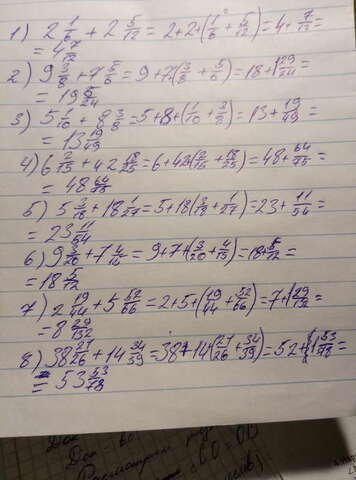 1) 2 1/6 + 2 5/12 = 2+2+(1/6 + 5/12) = 4+ 7/12 =
= 4 7/12
2) 9 3/8 + 7 5/6 = 9+7(3/8 + 5/6) = 18+1 29/24 =
= 19 5/24
3) 5 1/10 + 8 3/8 = 5+8+(1/10 + 3/8) = 13+ 19/49 =
= 13 19/49
4) 6 2/15 + 42 18/25 = 6+42(2/15 + 18/25) = 48+ 64/75 =
= 48 64/75
5) 5 3/18 + 18 1/27 = 5+18(3/18 + 1/27) = 23+ 11/54 =
= 23 11/54
6) 9 3/20 + 7 4/15 = 9+7+(3/20 + 4/15) = 18+ 5/12 =
= 18 5/12
7) 2 19/44 + 5 52/66 = 2+5+(19/44 + 52/66) = 7+1 29/132 =
= 8 29/132
8) 38 21/26 + 14 34/39 = 38+14(21/26 + 34/39) = 52+1 53/78 =
= 53 53/78